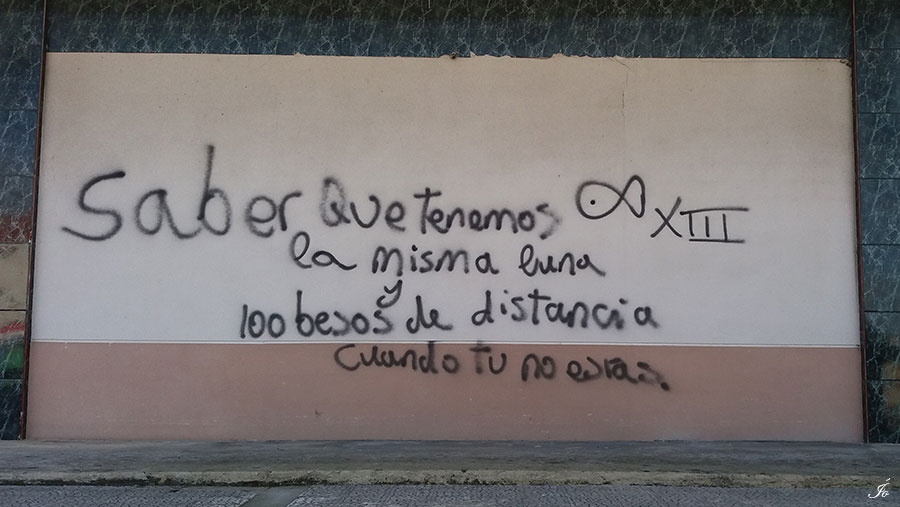 Saber Que tenemos XIII
la misma luna
y
100 besos de distancia
cuando tu no estas.